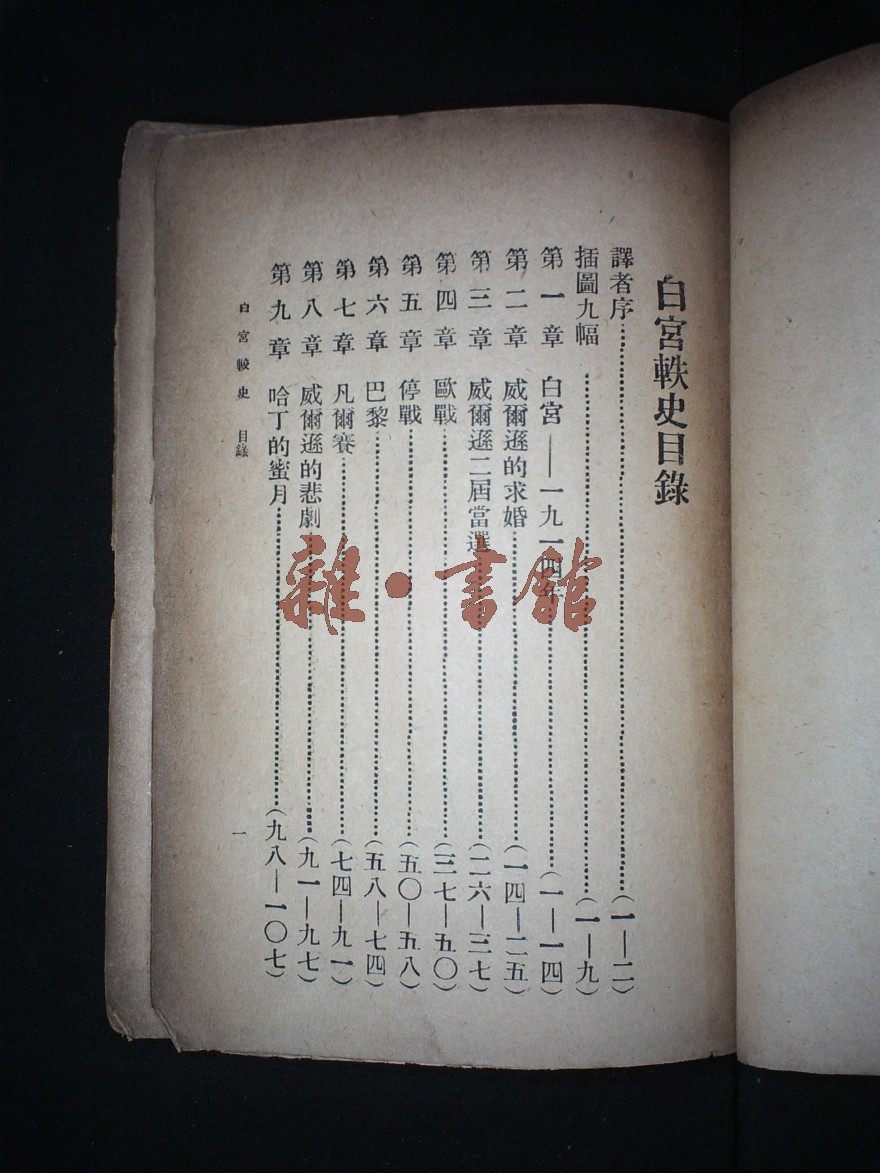 白宮軼史目錄
譯者序……(一—二)
插圖九幅……(一—九)
第一章 白宮——一九一四年……(一—一四)
第二章 威爾遜的求婚……(一四—二五)
第三章 威爾遜二屆當選……(二六—三七)
第四章 歐戰……(三七—五〇)
第五章 停戰……(五〇—五八)
第六章 巴黎……(五八—七四)
第七章 凡爾賽……(七四—九一)
第八章 威爾遜的悲劇……(九一—九七)
第九章 哈丁的蜜月……(九八—一〇七)
白宮軼史 目錄
一
雜·書館